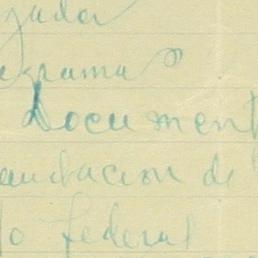 zada
egrama
Document
audacion de
o federal